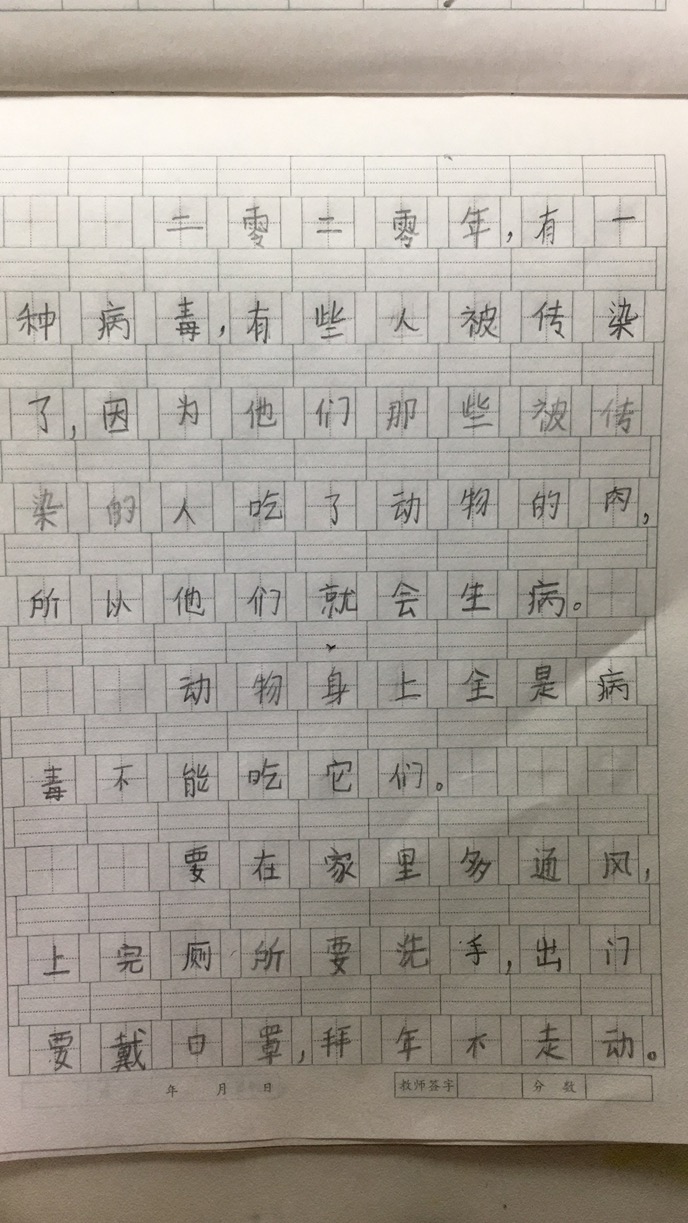 二零二零年,有一
种病毒,有些人被传染
了,因为他们那些被传
染的人吃了动物的肉,
所以他们就会生病。
动物身上全是病
毒不能吃它们。
要在家里多通风,
上完厕所要洗手,出门
要戴口罩,拜年不走动。
年 月 日 教师签字 分 数